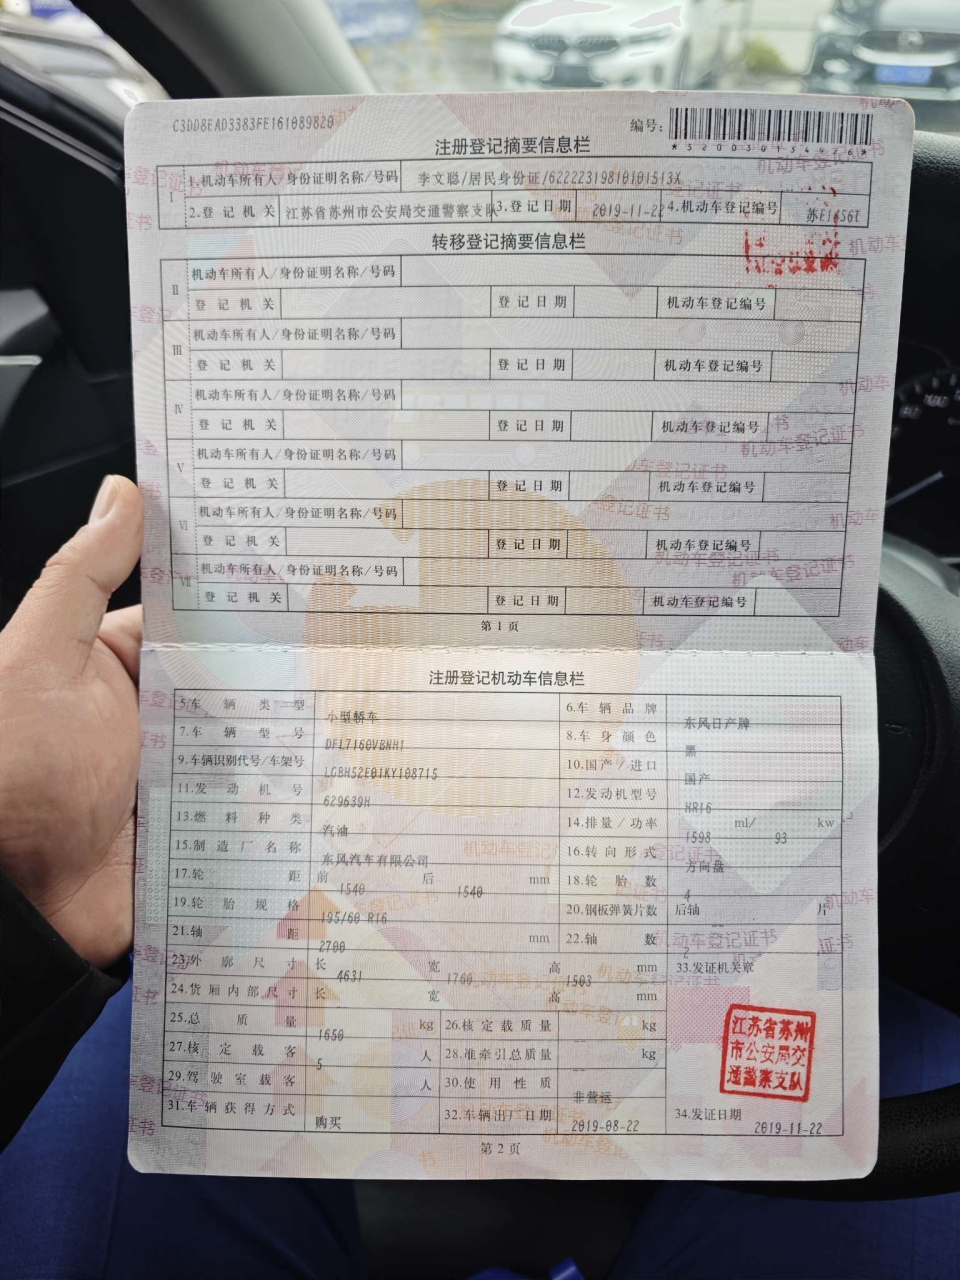 C3DD8EAD3383FE161089820
编号:
*320030134426*
注册登记摘要信息栏
I 1.机动车所有人/身份证明名称/号码 李文聪/居民身份证/62222319810101513X
2.登记机关 江苏省苏州市公安局交通警察支队 3.登记日期 2019-11-22 4.机动车登记编号
转移登记摘要信息栏
II 机动车所有人/身份证明名称/号码
登记机关 登记日期 机动车登记编号
III 机动车所有人/身份证明名称/号码
登记机关 登记日期 机动车登记编号
IV 机动车所有人/身份证明名称/号码
登记机关 登记日期 机动车登记编号
V 机动车所有人/身份证明名称/号码
登记机关 登记日期 机动车登记编号
VI 机动车所有人/身份证明名称/号码
登记机关 登记日期 机动车登记编号
VII 机动车所有人/身份证明名称/号码
登记机关 登记日期 机动车登记编号
第1页
注册登记机动车信息栏
5.车辆类型 小型轿车 6.车辆品牌 东风日产牌
7.车辆型号 DFL7160VBNH1 8.车身颜色 黑
9.车辆识别代号/车架号 LGBH52E01KY108715 10.国产/进口 国产
11.发动机号 629639H 12.发动机型号 HR16
13.燃料种类 汽油 14.排量/功率 1598 ml/ 93 kw
15.制造厂名称 东风汽车有限公司 16.转向形式 方向盘
17.轮距 前 1540 后 1540 mm 18.轮胎数 4
19.轮胎规格 195/60 R16 20.钢板弹簧片数 后轴 -- 片
21.轴距 2700 mm 22.轴数 2
23.外廓尺寸 长 4631 宽 1760 高 1503 mm 33.发证机关章
24.货厢内部尺寸 长 宽 高 mm
25.总质量 1650 kg 26.核定载质量 -- kg
27.核定载客 5 人 28.准牵引总质量 -- kg
29.驾驶室载客 人 30.使用性质 非营运
31.车辆获得方式 购买 32.车辆出厂日期 2019-08-22 34.发证日期 2019-11-22
江苏省苏州
市公安局交
通警察支队
第2页